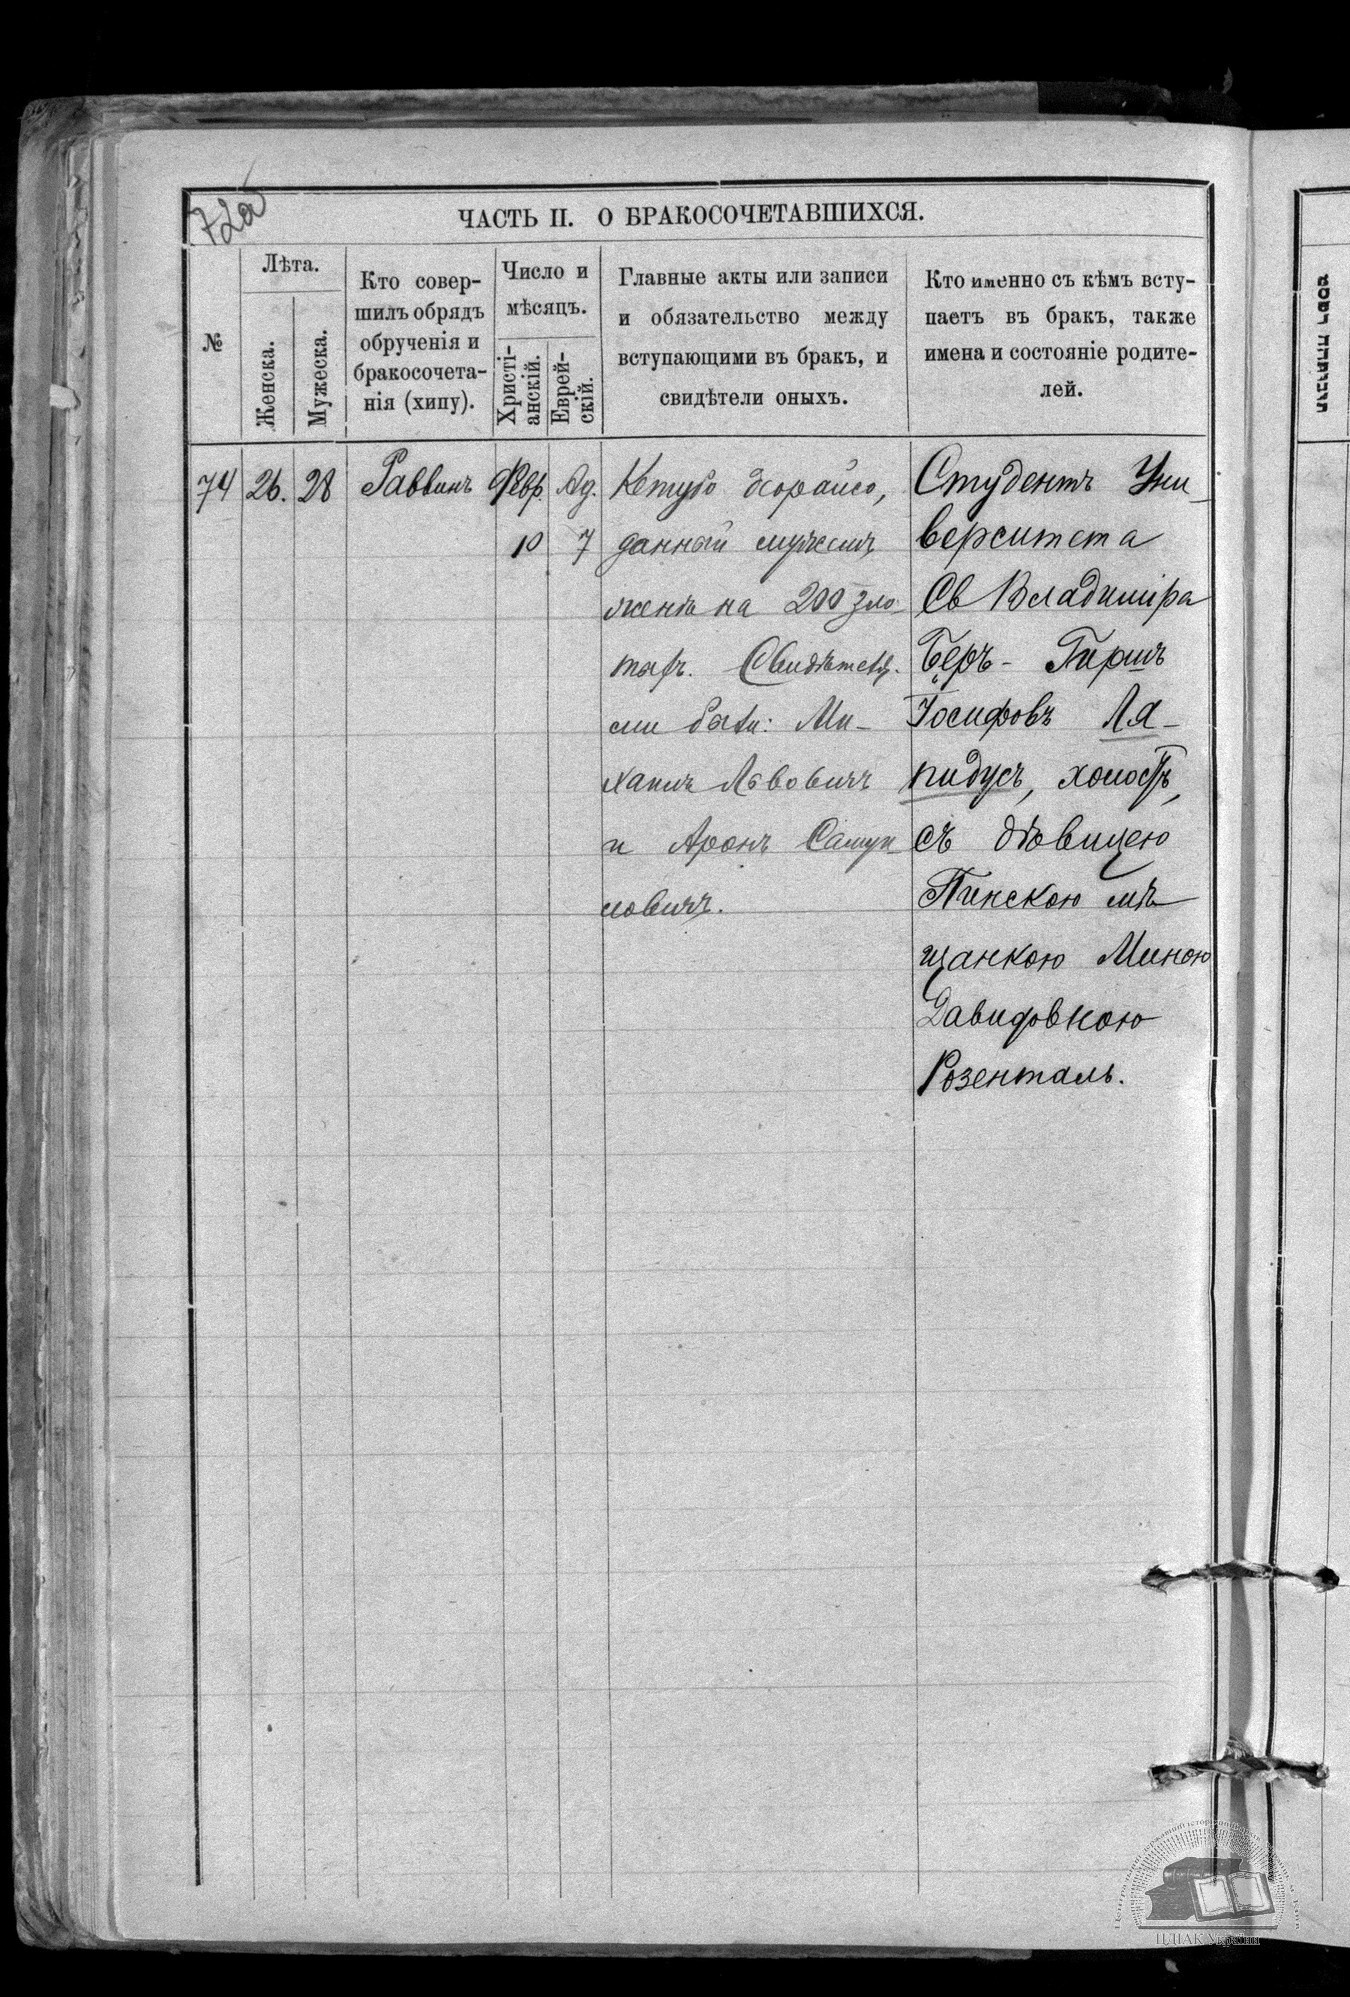 72об
ЧАСТЬ II. О БРАКОСОЧЕТАВШИХСЯ.
№
Лѣта.
Женска.
Мужеска.
Кто совер-
шилъ обрядъ
обрученія и
бракосочета-
нія (хипу).
Число и
мѣсяцъ.
Христі-
анскій.
Еврей-
скій.
Главные акты или записи
и обязательство между
вступающими въ бракъ, и
свидѣтели оныхъ.
Кто именно съ кѣмъ всту-
паетъ въ бракъ, также
имена и состояніе родите-
лей.
74
26.
28
Раввинъ
Февр.
10
Ад.
7
Кетубо
данный мужемъ
женѣ на 200 зло-
тыхъ. Свидѣтел.
ми были: Ми-
хаилъ Львовичъ
и Аронъ Самуи-
ловичъ.
Студентъ Уни-
верситета
Св Владиміра
Беръ - Гиршъ
Іосифовъ Ля-
пидусъ, холостъ,
съ дѣвицею
Пинскою мѣ-
щанкою Миною
Давидовною
Розенталь.
ЦДІАК України